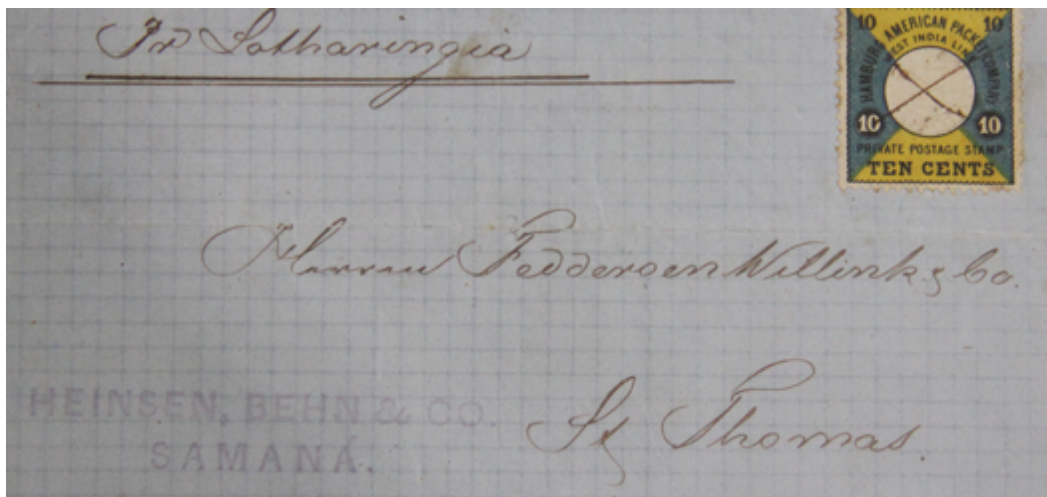 Pr Lotharingia
10 10
HAMBURG AMERICAN PACKET COMPANY
WEST INDIA LINE
10 10
PRIVATE POSTAGE STAMP
TEN CENTS
Herren Feddersen Willink & Co.
HEINSEN, BEHN & CO.
SAMANÁ.
St Thomas.